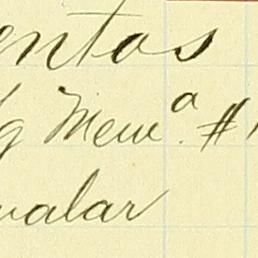 entos
g Mem.ª #1
ualar